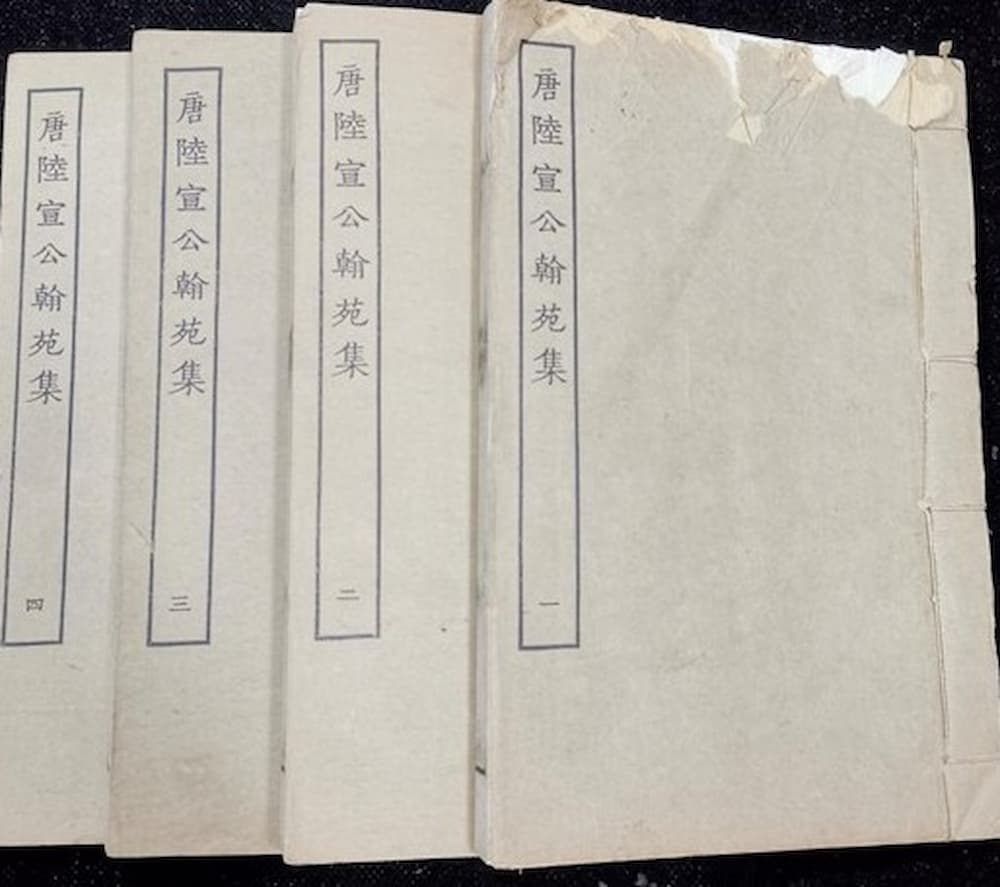 唐陸宣公翰苑集
一
唐陸宣公翰苑集
二
唐陸宣公翰苑集
三
唐陸宣公翰苑集
四